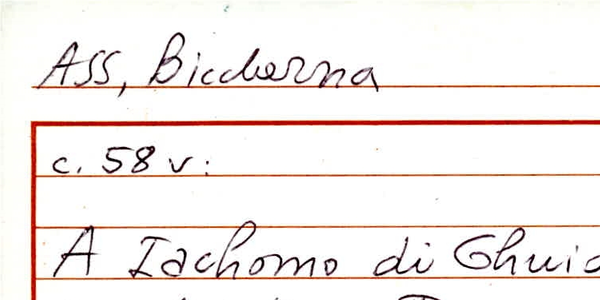 ASS, Biccherna
c. 58 v:
A Iachomo di Ghuid